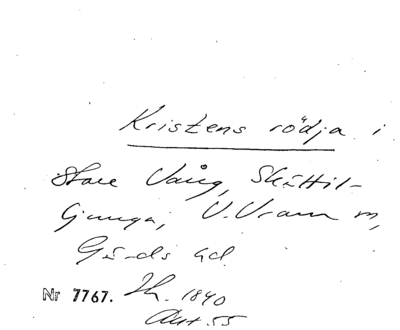 Kristens rödja i
Store Vång, Skättil-
ljunga, V. Vram sn,
Gärds hd
Nr 7767. Th. 1840
Akt 55